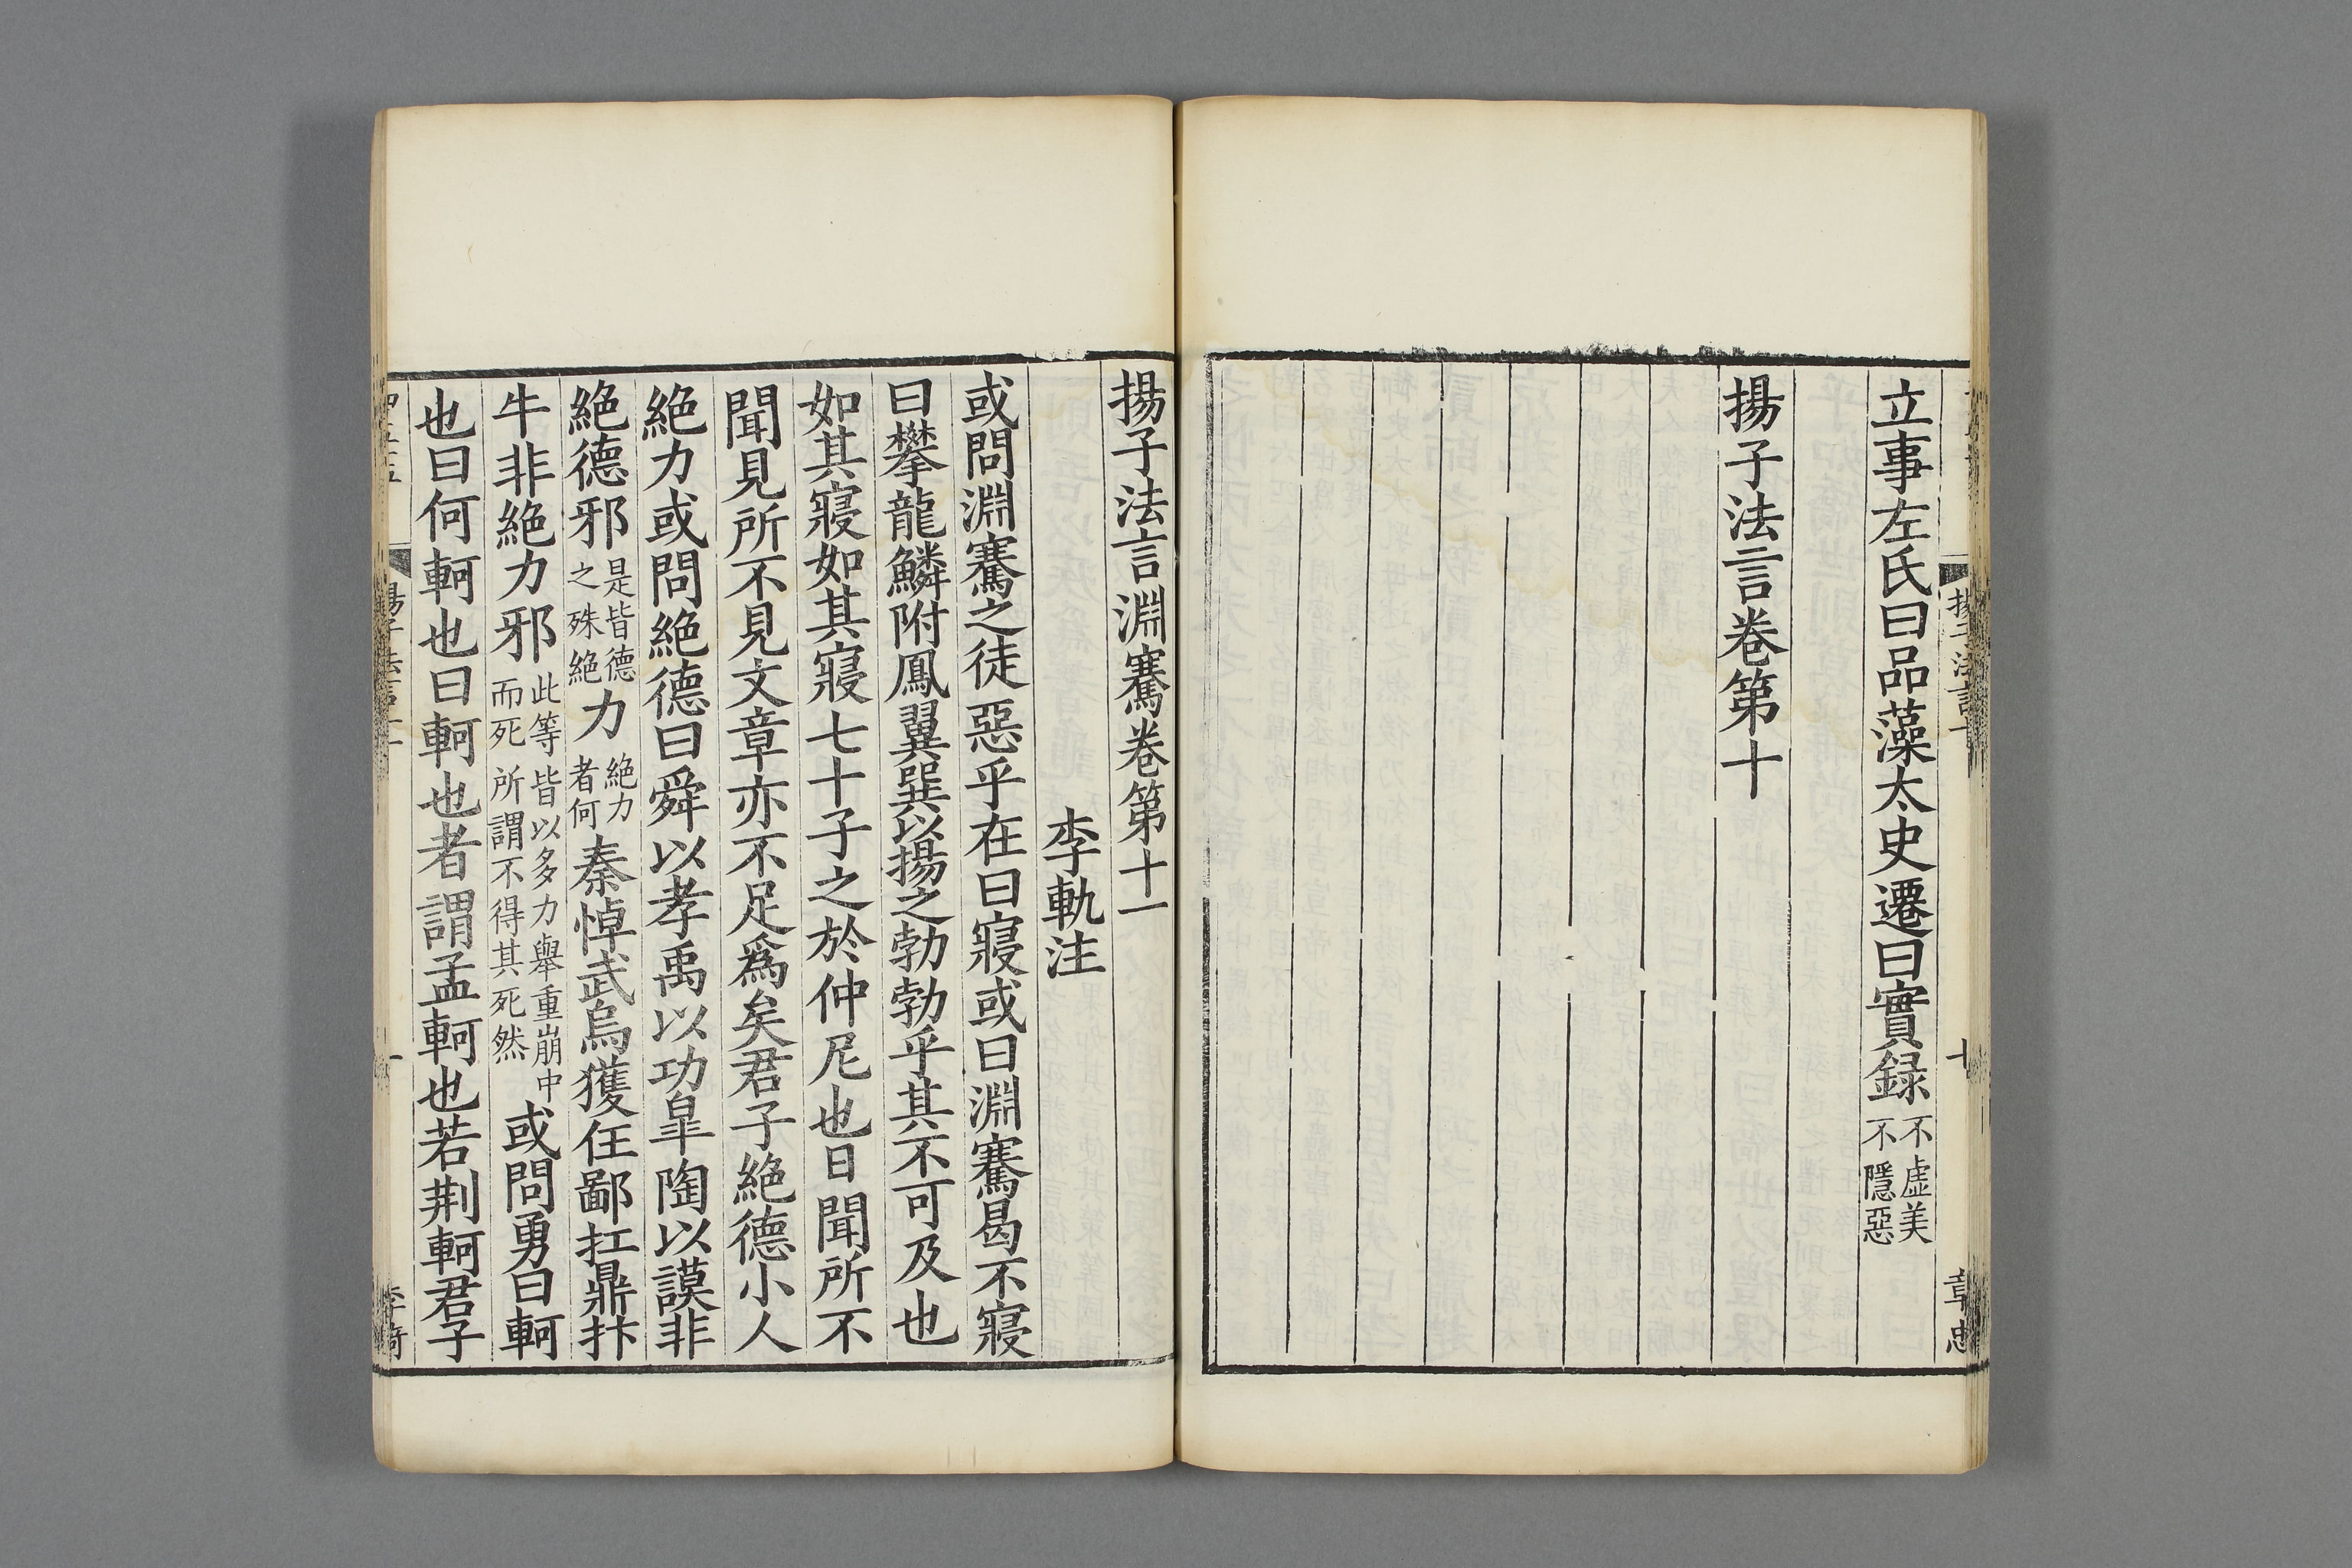 立事左氏曰品藻太史遷曰實録不虛美不隱惡
揚子法言卷第十
揚子法言十
十
章忠
揚子法言淵騫卷第十一
李軌注
或問淵騫之徒惡乎在曰寢或曰淵騫曷不寢
曰攀龍鱗附鳳翼巽以揚之勃勃乎其不可及也
如其寢如其寢七十子之於仲尼也日聞所不
聞見所不見文章亦不足爲矣君子絶德小人
絶力或問絶德曰舜以孝禹以功皐陶以謨非
絶德邪是皆德之殊絶力絶力者何秦悼武烏獲任鄙扛鼎抃
牛非絶力邪此等皆以多力舉重崩中而死所謂不得其死然或問勇曰軻
也曰何軻也曰軻也者謂孟軻也若荆軻君子
揚子法言十一
一
李倚